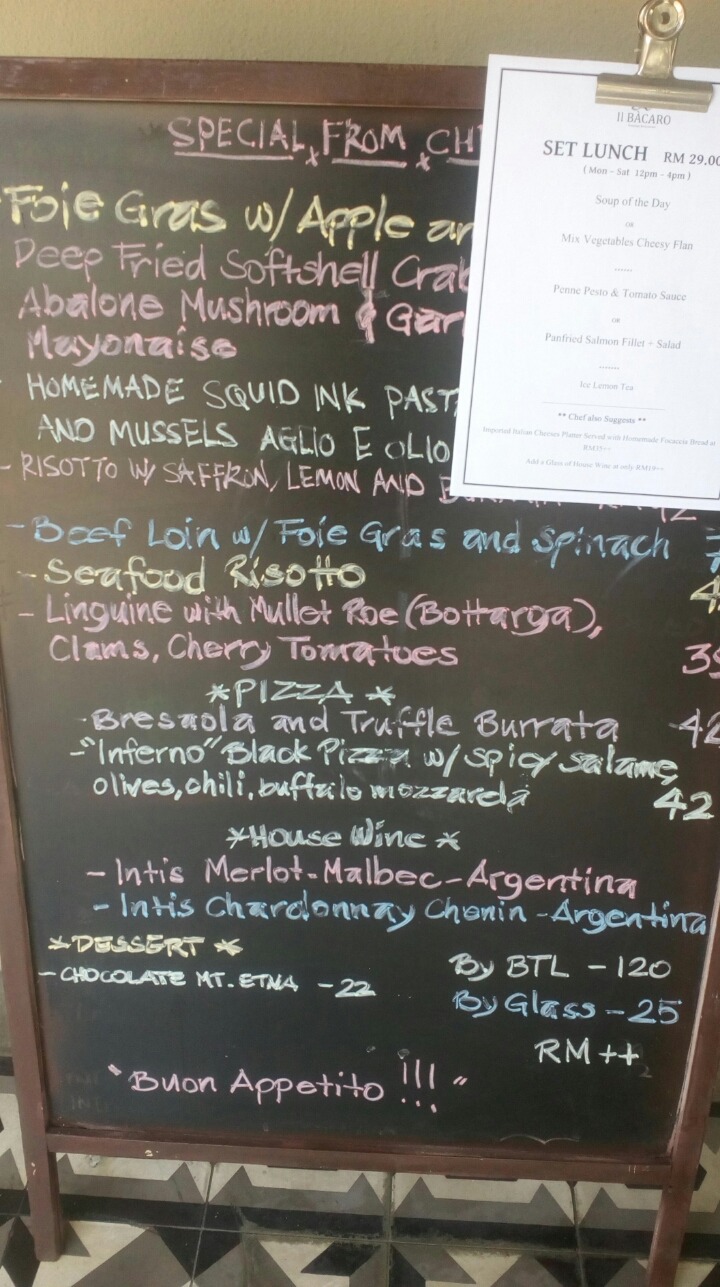 SPECIAL FROM
Foie Gras w/ Apple
Deep Fried Softshell
Abalone Mushroom &
Mayonaise
HOMEMADE SQUID INK
AND MUSSELS AGLIO E OLIO
- RISOTTO W/ SAFFRON, LEMON AND
- Beef Loin w/ Foie Gras and Spinach
- Seafood Risotto
- Linguine with Mullet Roe (Bottarga),
Clams, Cherry Tomatoes
*PIZZA *
- Bresaola and Truffle Burrata 42
- "Inferno" Black Pizza w/ spicy salame,
olives, chili, buffalo mozzarela 42
*House Wine *
- Intis Merlot-Malbec-Argentina
- Intis Chardonnay Chenin - Argentina
*DESSERT *
- CHOCOLATE MT. ETNA - 22
By BTL - 120
By Glass - 25
RM ++
"Buon Appetito !!!"
Il BACARO
SET LUNCH RM 29.00
( Mon - Sat 12pm - 4pm )
Soup of the Day
OR
Mix Vegetables Cheesy Flan
......
Penne Pesto & Tomato Sauce
OR
Panfried Salmon Fillet + Salad
.......
Ice Lemon Tea
** Chef also Suggests **
Imported Italian Cheeses Platter Served with Homemade Focaccia Bread at
RM35++
Add a Glass of House Wine at only